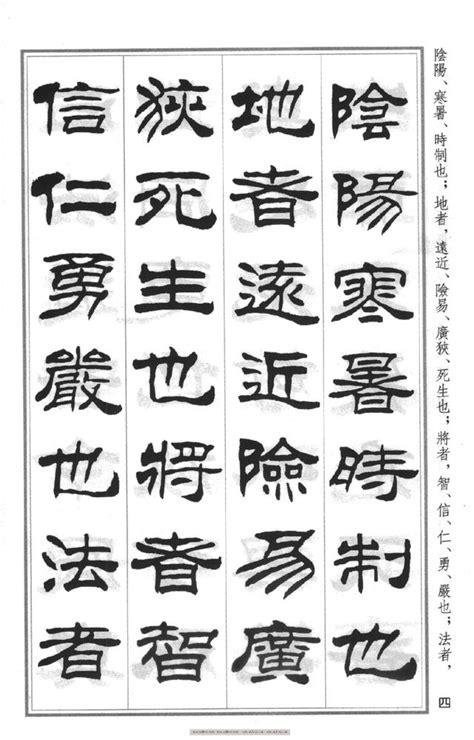 陰陽、寒暑、時制也；地者，遠近、險易、廣狹、死生也；將者，智、信、仁、勇、嚴也；法者，
陰陽寒暑時制也
地者遠近險易廣
狹死生也將者智
信仁勇嚴也法者
四